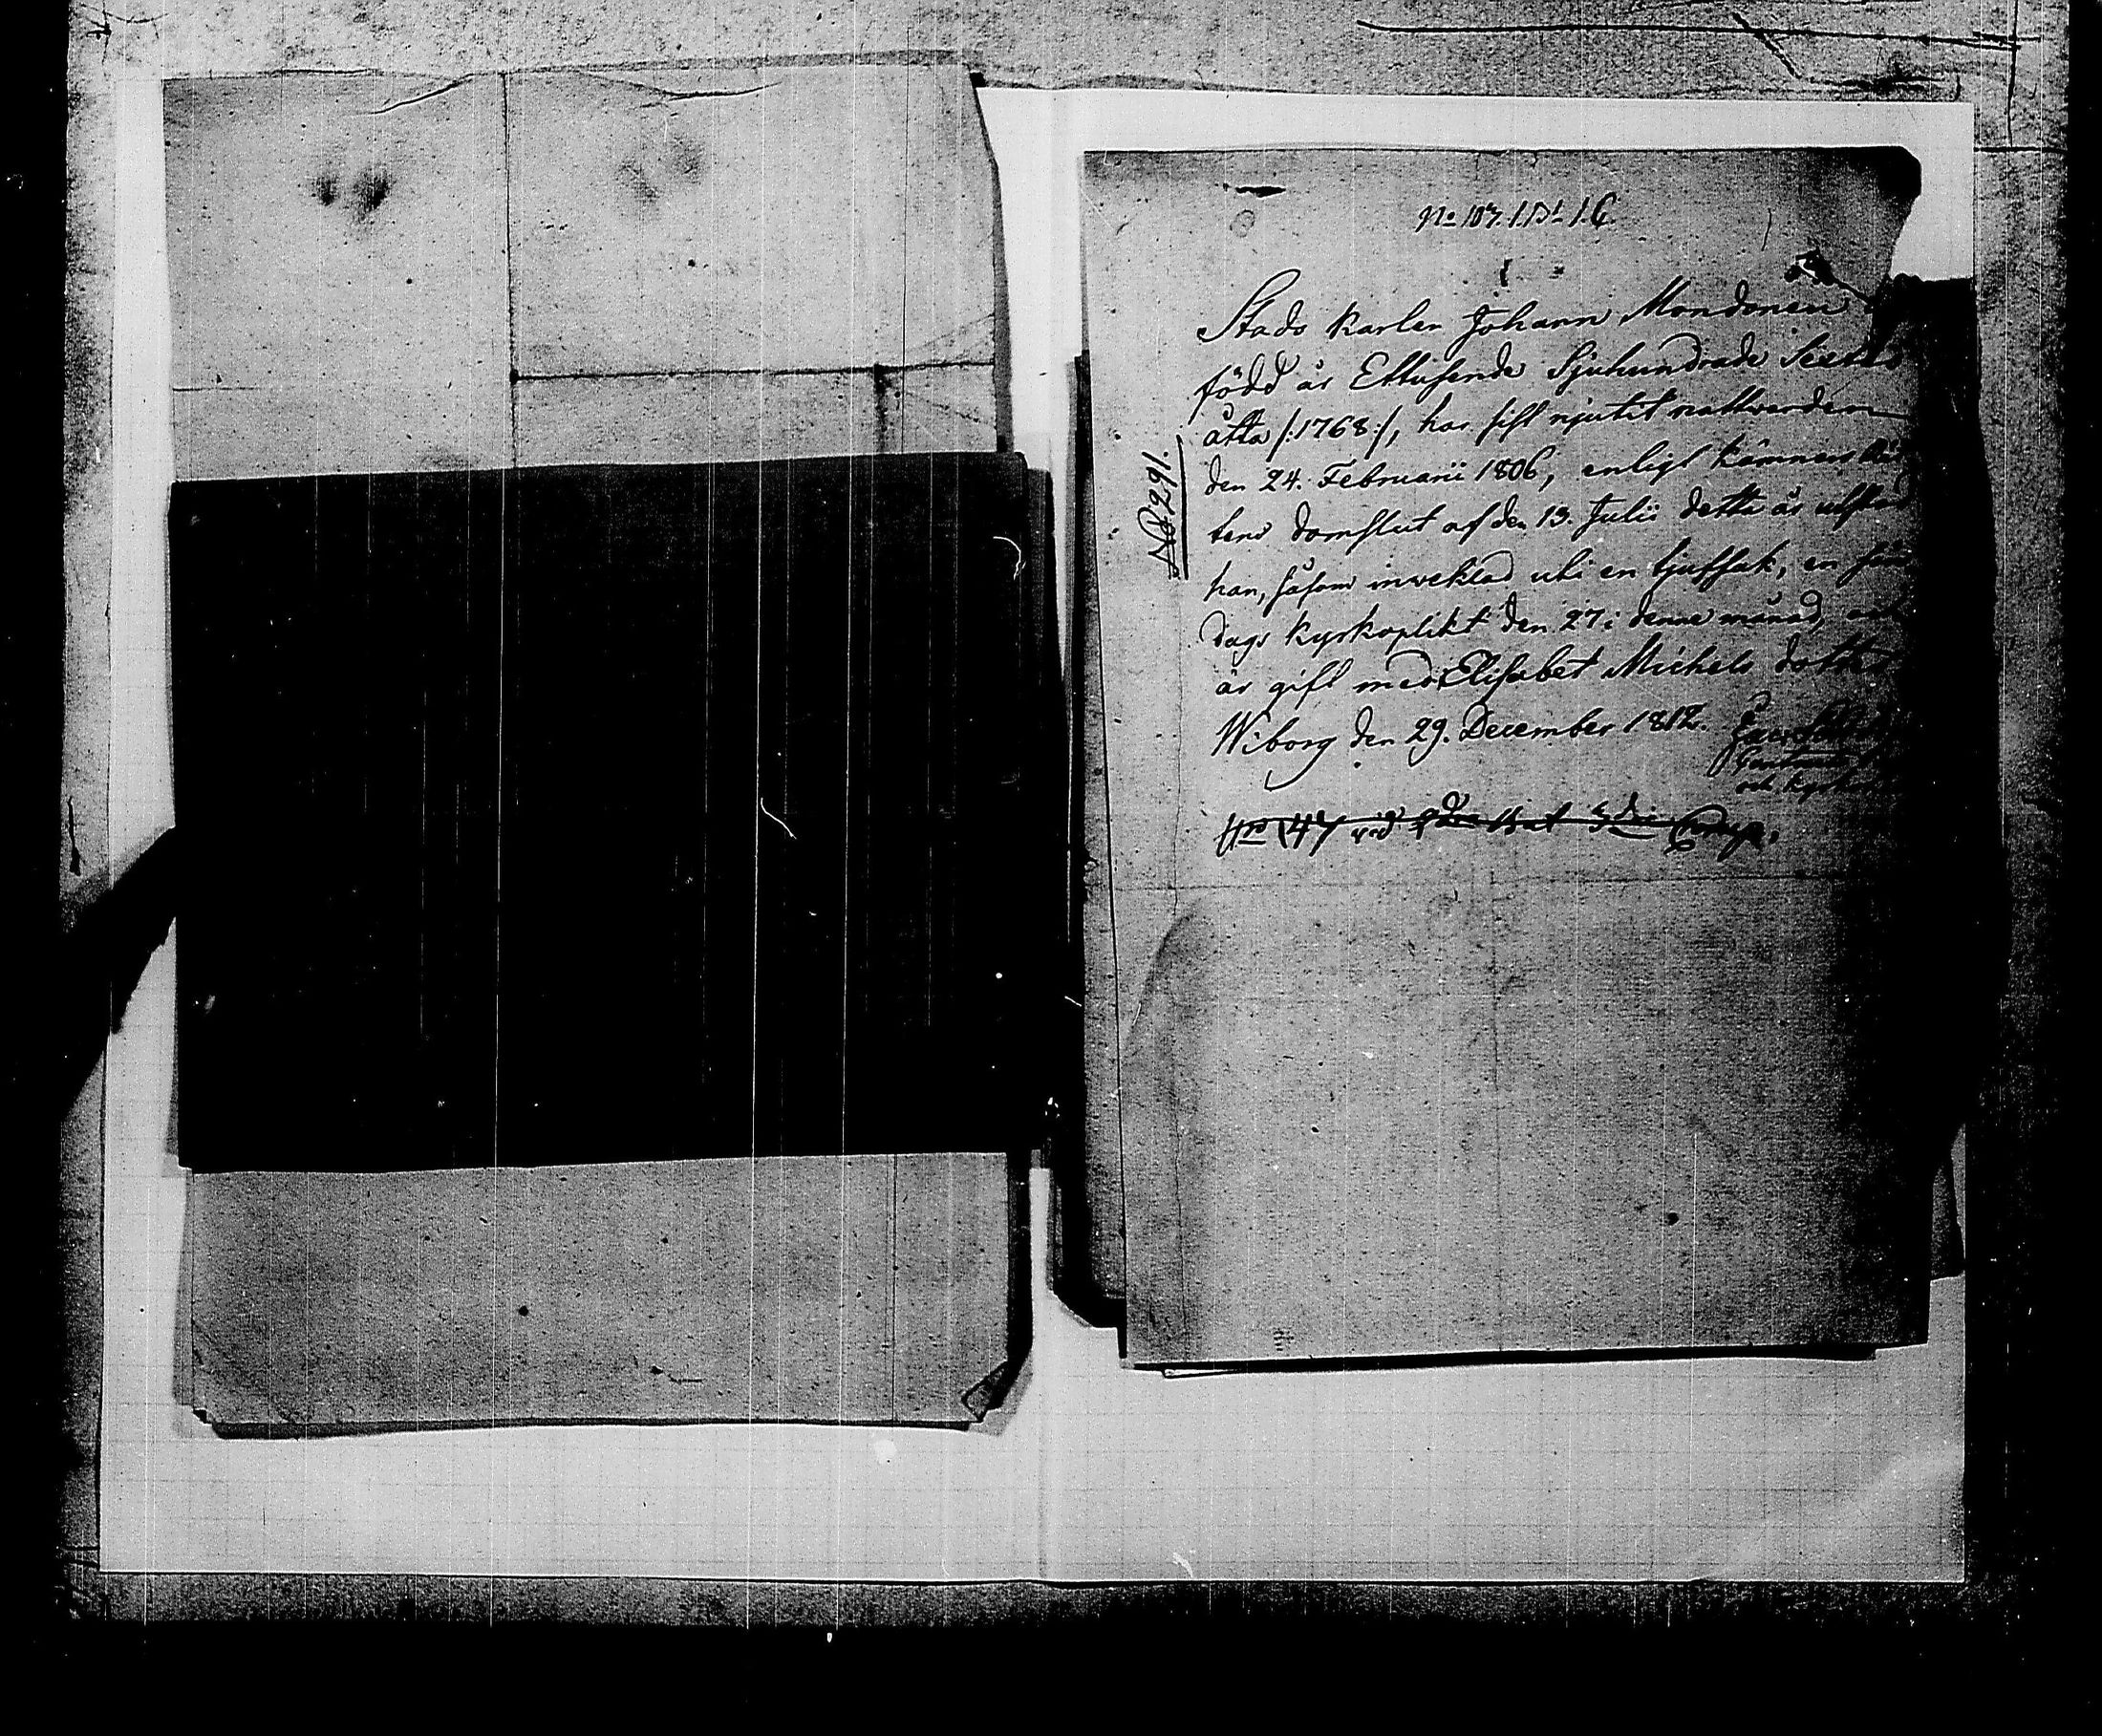 No 107. 1. Bt. 1. C.
Stads karlen Johann Mondonen
född år Ettusende Sjuhundrade Sextio
åtta /:1768:/, har sist njutit nattwarden
den 24. Februarii 1806, enligt Kämners Rät
tens domslut af den 13. Julii detta år utstod
han, såsom inweklad uti en tjufsak, en sön
dags kyrkoplikt den 27 i denne månad, och
är gift med Elisabet Michels dotter
Wiborg den 29. December 1812.
och kyrkoh
No 147 vid Bat 3die Comp.
No 291.